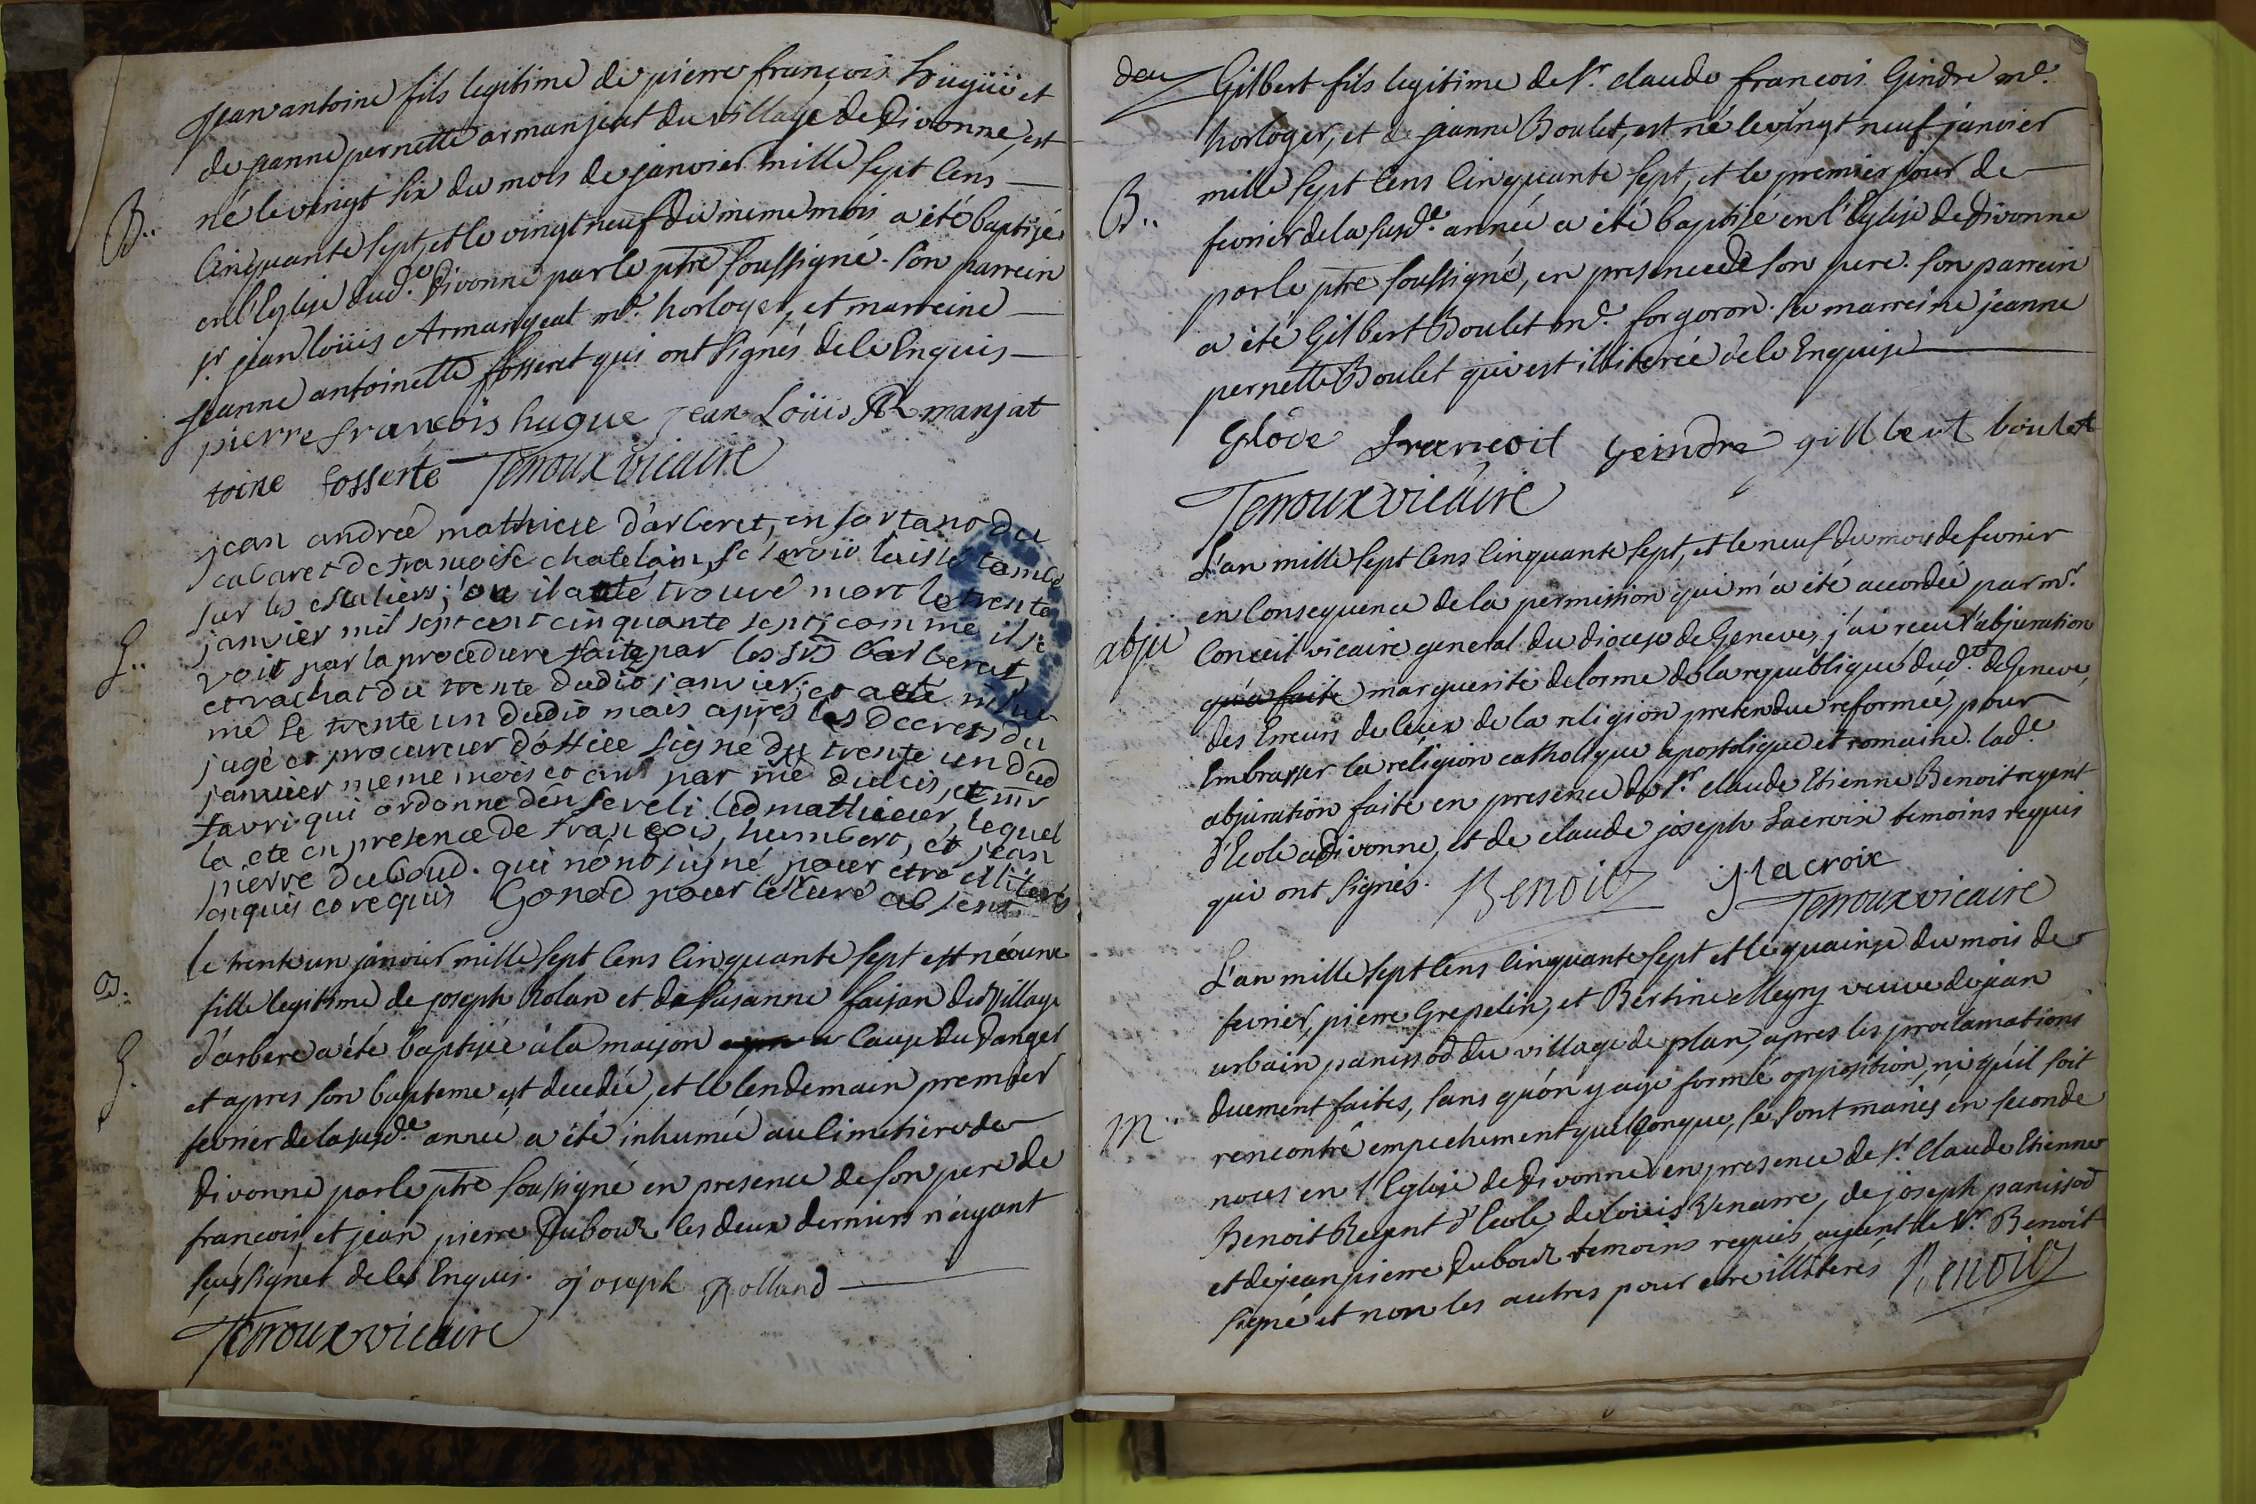 jean antoine fils legitime de pierre françois huguë et
de jeanne pernette armanjeat du village de Divonne, est
né le vingt six du mois de janvier mille sept cens
B.. cinquante sept, et le vingt neuf du meme mois a été baptizé
en l'Eglise dud.e Divonne par le ptre soussigné. son parrein
sr. jean loüis Armangeat me. horloger, et marreine
jeanne antoinette fosseret qui ont signés de le Enquis
pierre françois hugue jean Loüis Armanjat
toine fosserte Terroux vicaire
jean andreé mathieue d'arberet, en sortano du
cabaret de françoise chatelain, se seroit laisse tombé
sur les esealiers, ou il a eté trouvé mort le trente
S.. janvier mil sept cent cinquante sept, comme il se
voit par la procedure faite par les srs barberat
et rachat du trente dudit janvier, et a eté inhu
mé le trente un dudio mois apres les decrets du
juge et procureur d'office signé du trente un dud
janvier meme mois et an par me dulcis, et mr
favri qui ordonne d'enseveli led mathieue, lequel
la ete en presence de françois, humbert, et jean
pierre duboud. qui n'ont signé pour etre illiterés
enquis et requis Gonod pour le curé absent
B. le trente un janvier mille sept cens cinquante sept est née une
fille legitime de joseph Rolan et de susanne faisan du village
S. d'arbere a été baptizée à la maison a cause du danger
et apres son bapteme est decedée, et le lendemain premier
fevrier de la susde. année a été inhumée au cimetiere de
Divonne par le ptre soussigné en presence de son pere de
francois, et jean pierre Dubouz les deux derniers n'ayant
sçus signer de les Enquis. joseph Rolland
Terroux vicaire
Gilbert fils legitime de sr. claude francois Gindre me.
horloger, et de jeanne Boulet, est né le vingt neuf janvier
mille sept cens cinquante sept, et le premier jour de
B.. fevrier de la susde. année a été baptizé en l'Eglise de Divonne
par le ptre soussigné, en presence de son pere. son parrein
a été Gilbert Boulet me. forgeron. sa marreine jeanne
pernette Boulet qui est illiterée de le Enquise
Glode Françoit Geindre gillbert boulet
Terroux vicaire
L'an mille sept cens cinquante sept, et le neuf du mois de fevrier
en consequence de la permission qui m'a été accordée par mr.
abju conseil vicaire general du diocese de Geneve, j'ai receu l'abjuration
qu'a faite marguerite delorme de la republique dud. de Geneve,
des Erreurs de ceux de la religion pretendue reformée, pour
Embrasser la réligion catholique apostolique et romaine. lade.
abjuration faite en presence de sr. claude Etienne Benoit regent
d'Ecole a Divonne, et de claude joseph Lacroix temoins requis
qui ont signés. Benoit J lacroix
Terroux vicaire
L'an mille sept cens cinquante sept et le quainze du mois de
fevrier, pierre Grepelin, et Bertine Megny veuve de jean
urbain panissod du village de plan, apres les proclamations
duement faites, sans qu'on y aye formé opposition, ni qu'il soit
m. rencontré empechement quelqonque, se sont mariés en seconde
noces en l'Eglise de Divonne en presence de sr. Claude Etienne
Benoit Regent d'Ecole, de loüis Venarre, de joseph panissod
et de jean pierre Dubouz temoins requis, ayant le sr. Benoit
signé et non les autres pour etre illiterés Benoit